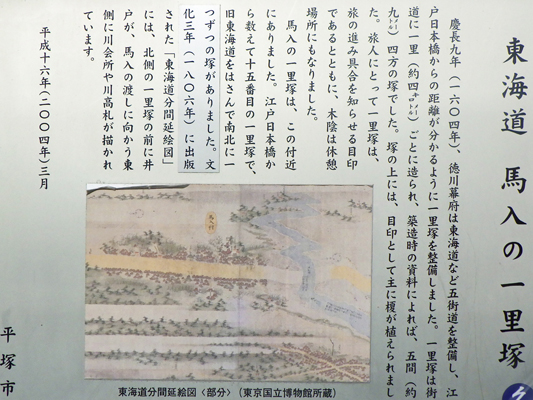 東海道 馬入の一里塚
慶長九年(一六〇四年)、徳川幕府は東海道など五街道を整備し、江
戸日本橋からの距離が分かるように一里塚を整備しました。一里塚は街
道に一里(約四キロメートル)ごとに造られ、築造時の資料によれば、五間(約
九メートル)四方の塚でした。塚の上には、目印として主に榎が植えられまし
た。旅人にとって一里塚は、
旅の進み具合を知らせる目印
であるとともに、木陰は休憩
場所にもなりました。
馬入の一里塚は、この付近
にありました。江戸日本橋か
ら数えて十五番目の一里塚で、
旧東海道をはさんで南北に一
つずつの塚がありました。文
化三年(一八〇六年)に出版
された「東海道分間延絵図」
には、北側の一里塚の前に井
戸が、馬入の渡しに向かう東
側に川会所や川高札が描かれ
ています。
平成十六年(二〇〇四年)三月
平塚市
東海道分間延絵図〈部分〉(東京国立博物館所蔵)